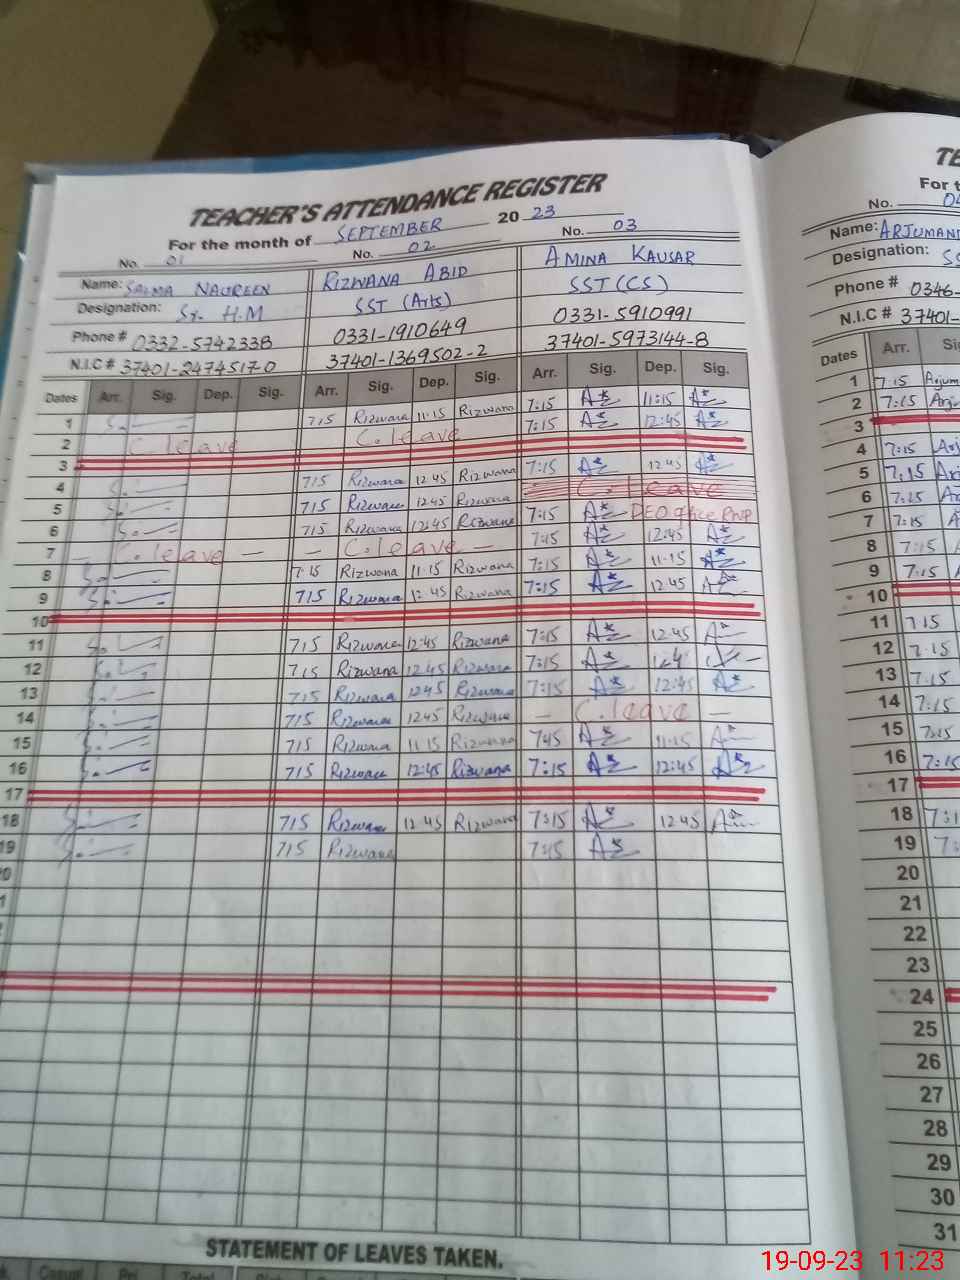 TEACHER'S ATTENDANCE REGISTER
For the month of SEPTEMBER 20 23
No. 01 No. 02 No. 03
Name: SALMA NAUREEN RIZWANA ABID AMINA KAUSAR
Designation: Sr. H.M SST (Arts) SST (CS)
Phone # 0332-5742338 0331-1910649 0331-5910991
N.I.C # 37401-2474517-0 37401-1369502-2 37401-5973144-8
Dates Arr. Sig. Dep. Sig. Arr. Sig. Dep. Sig. Arr. Sig. Dep. Sig.
1 715 Rizwana 11·15 Rizwana 7:15 11:15
2 C. leave C. leave 7:15 12:45
3
4 715 Rizwana 12 45 Rizwana 7:15 12 45
5 715 Rizwana 12 45 Rizwana C. leave
6 715 Rizwana 12:45 Rizwana 7:15 DEO office
7 — C. leave — — C. leave — 12:45
8 7·15 Rizwana 11·15 Rizwana 7:15 11·15
9 715 Rizwana 12:45 Rizwana 7:15 12.45
10
11 715 Rizwana 12:45 Rizwana 7:15 12.45
12 715 Rizwana 12.45 Rizwana 7:15
13 715 Rizwana 1245 Rizwana 7:15 12:45
14 715 Rizwana 1245 Rizwana — C. leave —
15 715 Rizwana 11 15 Rizwana 11·15
16 715 Rizwana 12:45 Rizwana 7:15 12:45
17
18 715 Rizwana 12 45 Rizwana 7:15 12 45
19 715 Rizwana
STATEMENT OF LEAVES TAKEN.
Casual Total
TE
For t
No. 04
Name: ARJUMAN
Designation: SS
Phone # 0346-
N.I.C # 37401-
Dates Arr. Sig
1 7:15 Arjum
2 7:15 Arju
3
4 7:15 Arj
5 7.15 Arj
6 7:15 Ar
7 7:15 A
8 7:15
9 7:15
10
11 7 15
12 7·15
13 7·15
14 7:15
15 7:15
16 7:15
17
18 7:1
19 7:
20
21
22
23
24
25
26
27
28
29
30
31
19-09-23 11:23